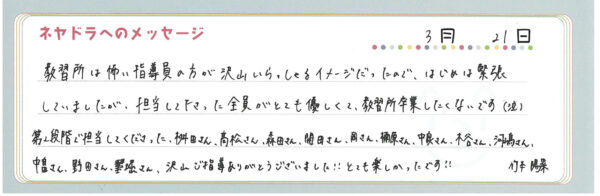 ネヤドラへのメッセージ
3月 21日
教習所は怖い指導員の方が沢山いらっしゃるイメージだったので、はじめは緊張
していましたが、担当して下さった全員がとても優しくて、教習所卒業したくないです(泣)
第2段階で担当してくださった、桝田さん、高松さん、森田さん、関目さん、岡さん、柳原さん、中泉さん、木谷さん、河島さん、
中島さん、野田さん、さん、沢山ご指導ありがとうございました!!とても楽しかったです!! 竹本